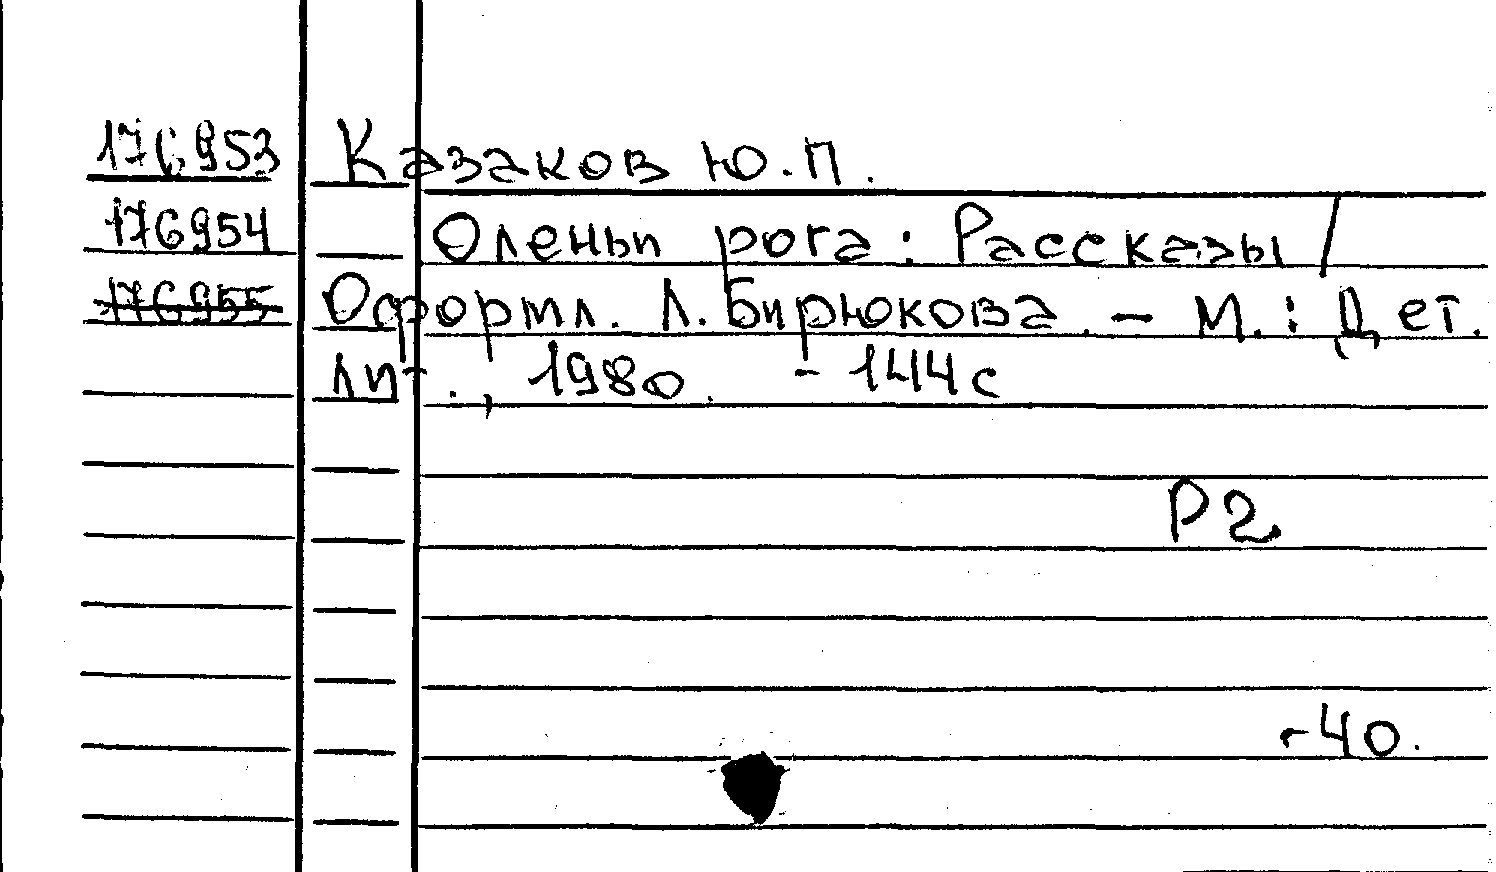 176953 Казаков Ю.П.
176954 Оленьи рога : Рассказы /
176955 Оформл. Л. Бирюкова. – М. : Дет.
лит., 1980. – 144с
Р2
-40.